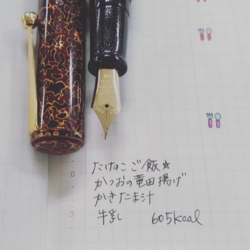 たけのこご飯☆
かつおの竜田揚げ
かきたま汁
牛乳 605kcal